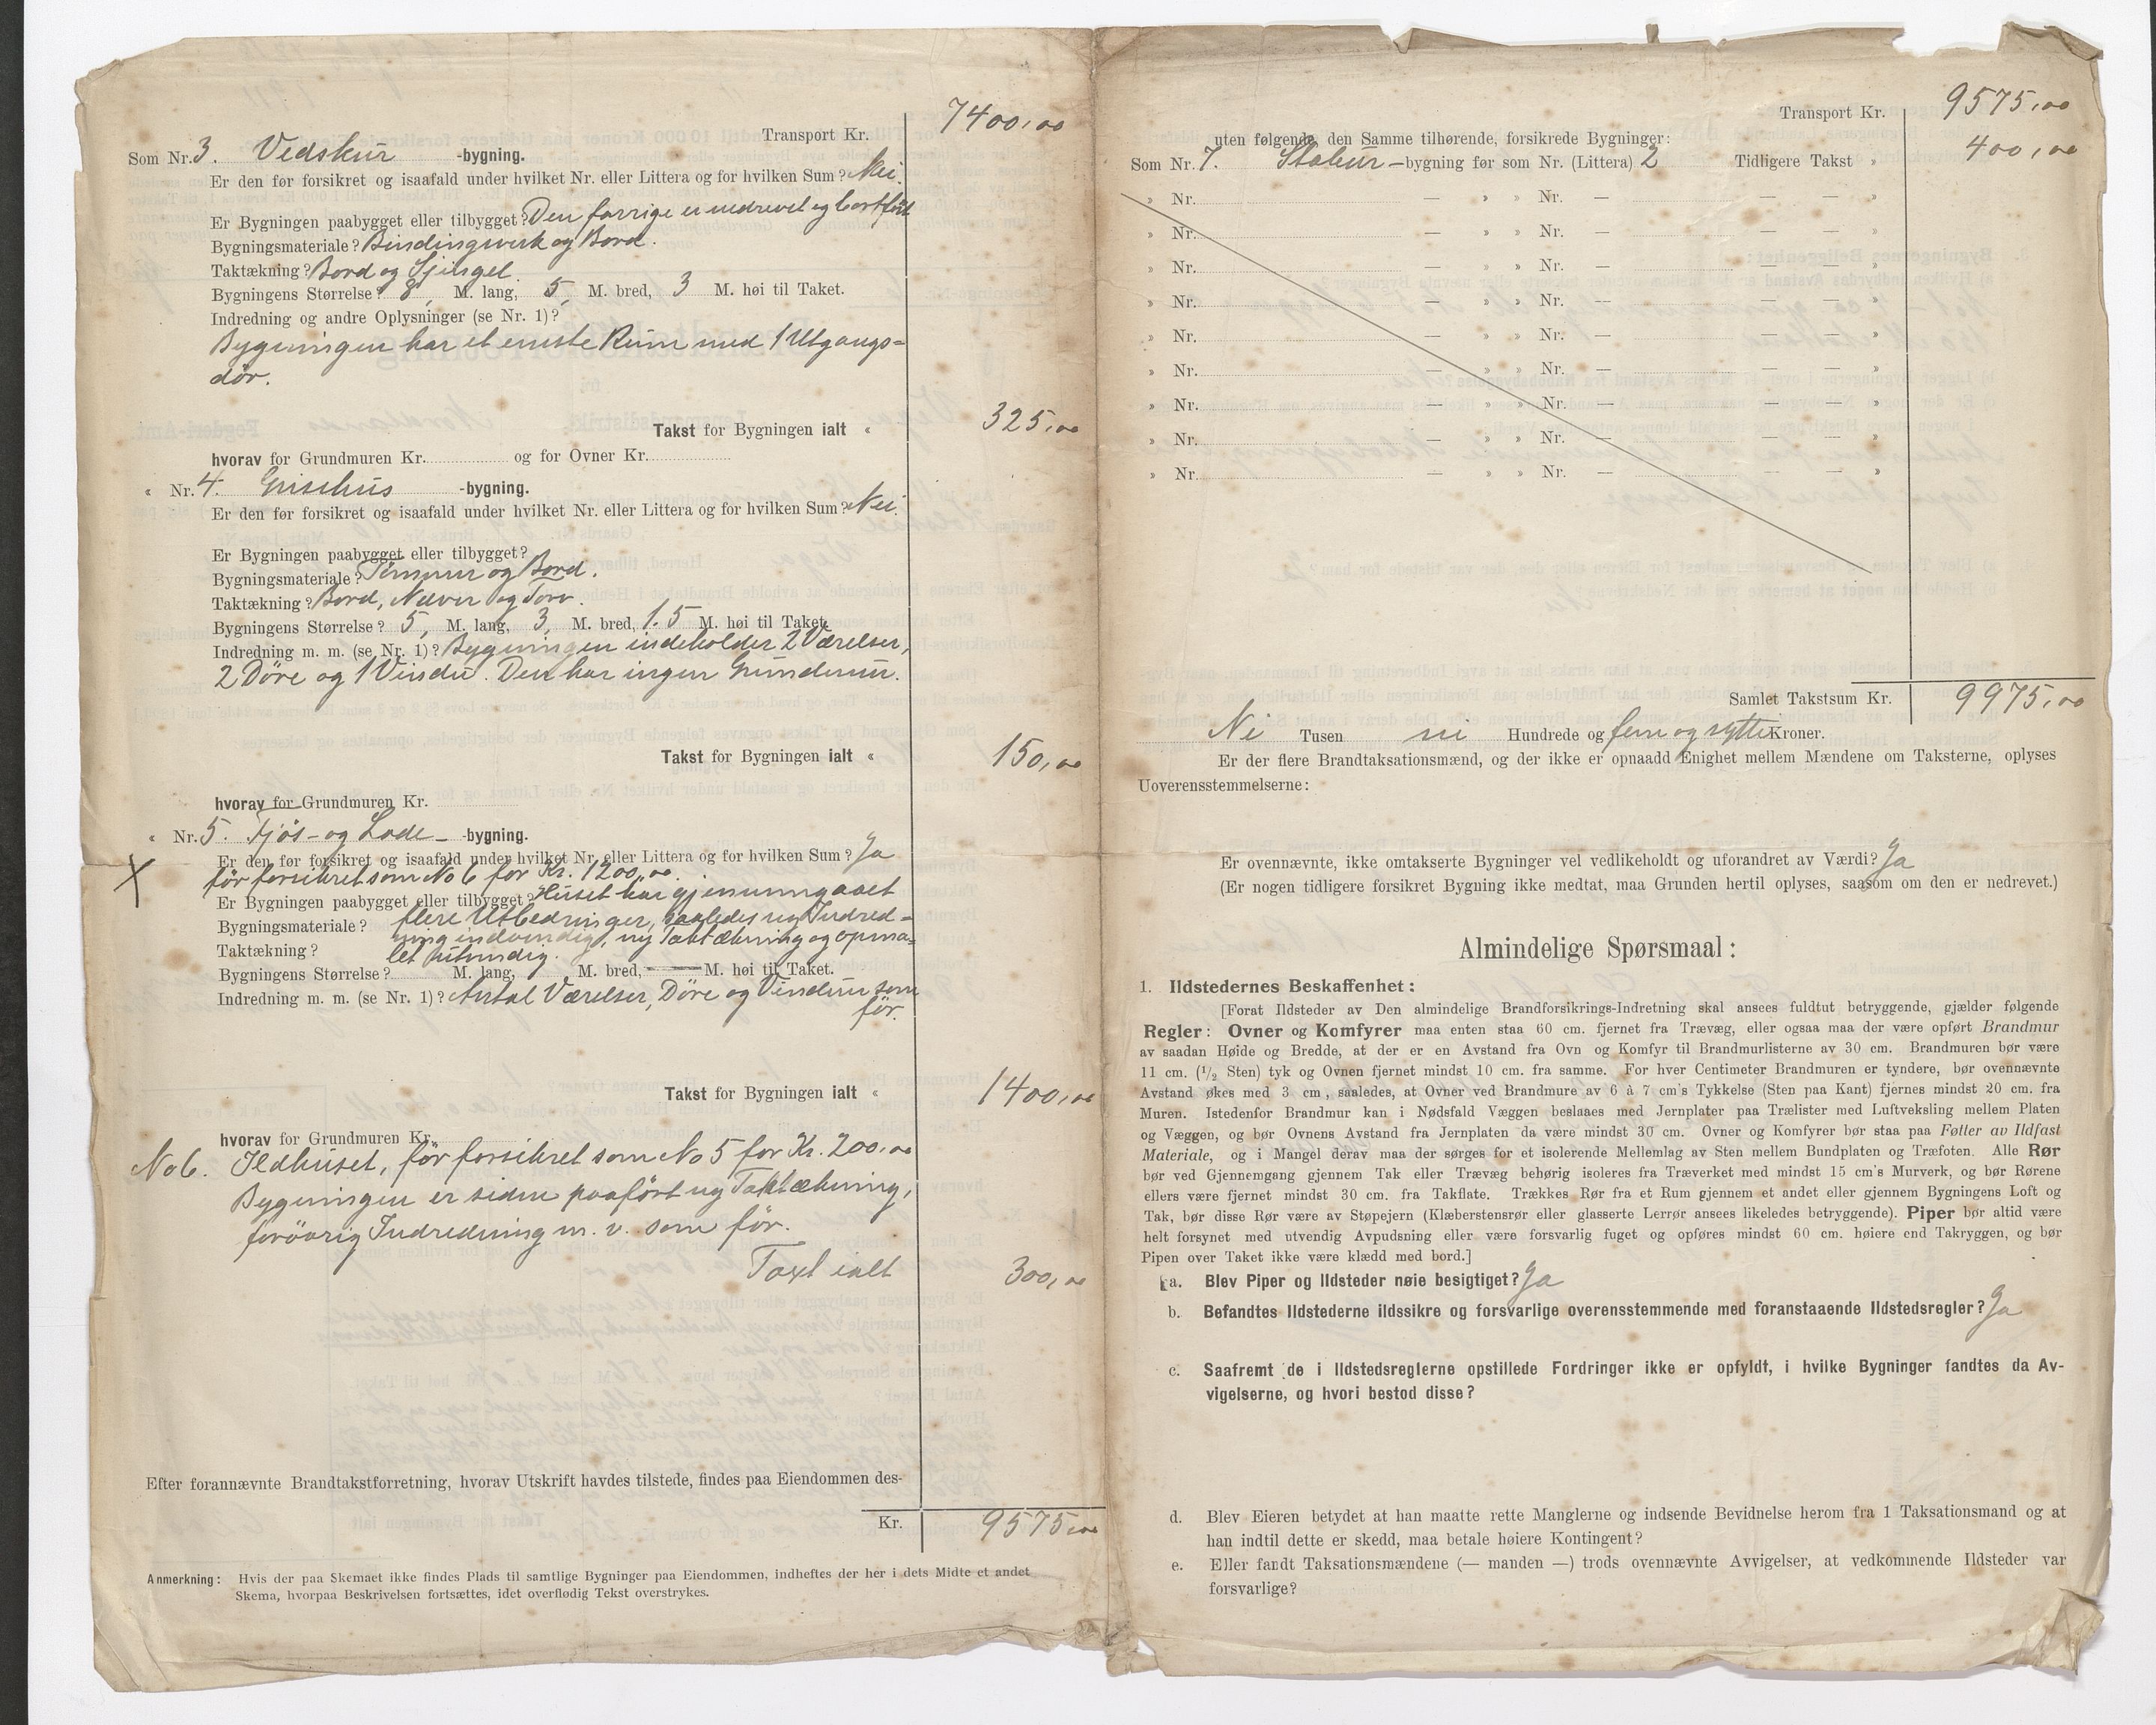 Transport Kr. 7400,00
Som Nr. 3. Vedskur -bygning.
Er den før forsikret og isaafald under hvilket Nr. eller Littera og for hvilken Sum? Nei.
Er Bygningen paabygget eller tilbygget? Den forrige er nedrevet og bortført
Bygningsmateriale? Bindingsverk og Bord.
Taktækning? Bord og Sjingel.
Bygningens Størrelse? 8, M. lang, 5, M. bred, 3 M. høi til Taket.
Indredning og andre Oplysninger (se Nr. 1)?
Bygningen har et eneste Rum med 1 Utgangs=
dör.
Takst for Bygningen ialt « 325,00
hvorav for Grundmuren Kr. og for Ovner Kr.
« Nr. 4. Grisehus -bygning.
Er den før forsikret og isaafald under hvilket Nr. eller Littera og for hvilken Sum? Nei.
Er Bygningen paabygget eller tilbygget?
Bygningsmateriale? Tömmer og Bord.
Taktækning? Bord, Næver og Torv.
Bygningens Størrelse? 5, M. lang, 3, M. bred, 1.5 M. høi til Taket.
Indredning m. m. (se Nr. 1)? Bygningen indeholder 2 Værelser,
2 Döre og 1 Vindu. Den har ingen Grundmur.
Takst for Bygningen ialt « 150,00
hvorav for Grundmuren Kr.
« Nr. 5. Fjös- og Lade- -bygning.
Er den før forsikret og isaafald under hvilket Nr. eller Littera og for hvilken Sum? Ja
X för forsikret som No 6 for Kr. 1200,00.
Er Bygningen paabygget eller tilbygget? Huset har gjennemgaaet
Bygningsmateriale? flere Utbedringer, saaledes ny Indred=
Taktækning? ning indvendig, ny Taktækning og opma=
let utvendig.
Bygningens Størrelse? M. lang, M. bred, M. høi til Taket.
Indredning m. m. (se Nr. 1)? Antal Værelser, Döre og Vinduer som
för.
Takst for Bygningen ialt « 1400,00
hvorav for Grundmuren Kr.
No 6. Ildhuset, för forsikret som No 5 for Kr. 200,00
Bygningen er siden paaført ny Taktækning,
forövrig Indredning m. v. som för.
Taxt ialt 300,00
Efter forannævnte Brandtakstforretning, hvorav Utskrift havdes tilstede, findes paa Eiendommen des-
Kr. 9575,00
Anmerkning: Hvis der paa Skemaet ikke findes Plads til samtlige Bygninger paa Eiendommen, indheftes der her i dets Midte et andet
Skema, hvorpaa Beskrivelsen fortsættes, idet overflødig Tekst overstrykes.
Transport Kr. 9575,00
uten følgende, den Samme tilhørende, forsikrede Bygninger:
Som Nr. 7. Stabur -bygning før som Nr. (Littera) 2 Tidligere Takst » 400,00
» Nr. — » » Nr. — — — »
» Nr. — » » Nr. — — — »
» Nr. — » » Nr. — — — »
» Nr. — » » Nr. — — — »
» Nr. — » » Nr. — — — »
» Nr. — » » Nr. — — — »
» Nr. — » » Nr. — — — »
» Nr. — » » Nr. — — — »
» Nr. — » » Nr. — — — »
Samlet Takstsum Kr. 9975,00
Ni Tusen ni Hundrede og fem og sytti Kroner.
Er der flere Brandtaksationsmænd, og der ikke er opnaadd Enighet mellem Mændene om Taksterne, oplyses
Uoverensstemmelserne:
Er ovennævnte, ikke omtakserte Bygninger vel vedlikeholdt og uforandret av Værdi? Ja
(Er nogen tidligere forsikret Bygning ikke medtat, maa Grunden hertil oplyses, saasom om den er nedrevet.)
Almindelige Spørsmaal:
1. Ildstedernes Beskaffenhet:
[Forat Ildsteder av Den almindelige Brandforsikrings-Indretning skal ansees fuldtut betryggende, gjælder følgende
Regler: Ovner og Komfyrer maa enten staa 60 cm. fjernet fra Trævæg, eller ogsaa maa der være opført Brandmur
av saadan Høide og Bredde, at der er en Avstand fra Ovn og Komfyr til Brandmurlisterne av 30 cm. Brandmuren bør være
11 cm. (1/2 Sten) tyk og Ovnen fjernet mindst 10 cm. fra samme. For hver Centimeter Brandmuren er tyndere, bør ovennævnte
Avstand økes med 3 cm, saaledes, at Ovner ved Brandmure av 6 à 7 cm's Tykkelse (Sten paa Kant) fjernes mindst 20 cm. fra
Muren. Istedenfor Brandmur kan i Nødsfald Væggen beslaaes med Jernplater paa Trælister med Luftveksling mellem Platen
og Væggen, og bør Ovnens Avstand fra Jernplaten da være mindst 30 cm. Ovner og Komfyrer bør staa paa Føtter av Ildfast
Materiale, og i Mangel derav maa der sørges for et isolerende Mellemlag av Sten mellem Bundplaten og Træfoten. Alle Rør
bør ved Gjennemgang gjennem Tak eller Trævæg behørig isoleres fra Træverket med mindst 15 cm's Murverk, og bør Rørene
ellers være fjernet mindst 30 cm. fra Takflate. Trækkes Rør fra et Rum gjennem et andet eller gjennem Bygningens Loft og
Tak, bør disse Rør være av Støpejern (Klæberstensrør eller glasserte Lerrør ansees likeledes betryggende). Piper bør altid være
helt forsynet med utvendig Avpudsning eller være forsvarlig fuget og opføres mindst 60 cm. høiere end Takryggen, og bør
Pipen over Taket ikke være klædd med bord.]
a. Blev Piper og Ildsteder nøie besigtiget? Ja
b. Befandtes Ildstederne ildssikre og forsvarlige overensstemmende med foranstaaende Ildstedsregler? Ja
c. Saafremt de i Ildstedsreglerne opstillede Fordringer ikke er opfyldt, i hvilke Bygninger fandtes da Av-
vigelserne, og hvori bestod disse?
d. Blev Eieren betydet at han maatte rette Manglerne og indsende Bevidnelse herom fra 1 Taksationsmand og at
han indtil dette er skedd, maa betale høiere Kontingent?
e. Eller fandt Taksationsmændene (— manden —) trods ovennævnte Avvigelser, at vedkommende Ildsteder var
forsvarlige?